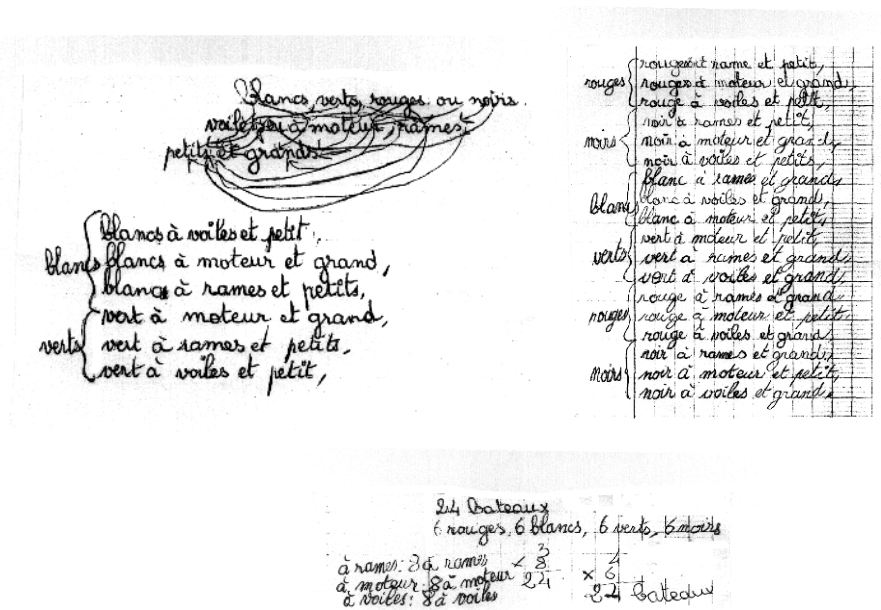 blancs, verts, rouges ou noirs.
voiles, ou à moteur, rames,
petits et grands.
blancs à voiles et petit,
blancs blancs à moteur et grand,
blancs à rames et petits,
vert à moteur et grand,
verts vert à rames et petits,
vert à voiles et petit,
rouges et rame et petit,
rouges rouges à moteur et grand,
rouge à voiles et petit,
noir à rames et petit,
noirs noir à moteur et grand,
noir à voiles et petits,
blanc à rames et grand,
blancs blanc à voiles et grand,
blanc à moteur et petit,
vert à moteur et petit,
verts vert à rames et grand,
vert à voiles et grand,
rouge à rames et grand,
rouges rouge à moteur et petit,
rouge à voiles et grand,
noir à rames et grand,
noirs noir à moteur et petit,
noir à voiles et grand.
24 bateaux
6 rouges, 6 blancs, 6 verts, 6 noirs
à rames: 8 à rames 3 4
à moteur: 8 à moteur × 8 × 6
à voiles: 8 à voiles 24 24 bateaux